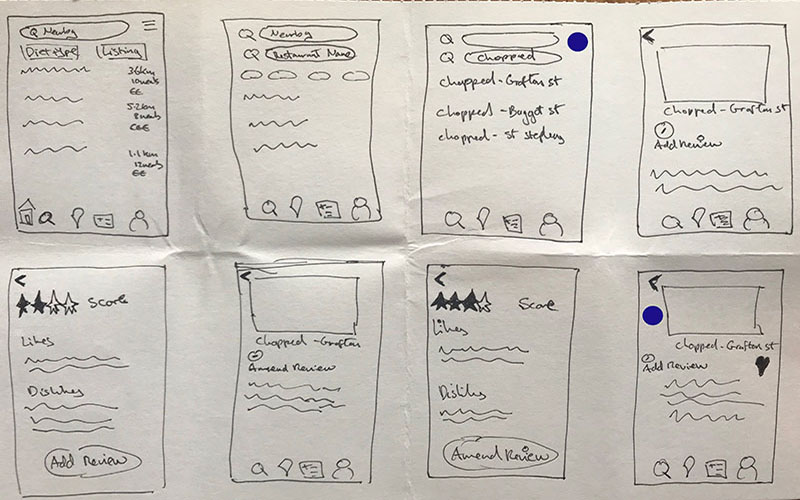 Nearby
Diet type Listing
3.6km
10 meals
€€
5.2km
8 meals
€€€
1.1km
12 meals
€€
Nearby
Restaurant Name
chopped
chopped - Grafton st
chopped - Baggot st
chopped - st stephens
Chopped - Grafton st
Add Review
Score
Likes
Dislikes
Add Review
Chopped - Grafton
Amend Review
Score
Likes
Dislikes
Amend Review
Chopped - Grafton st
Add Review